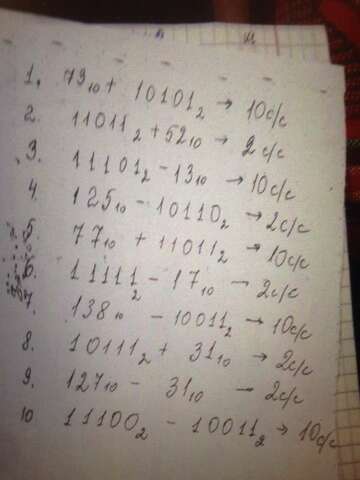 1. 73₁₀ + 10101₂ → 10 с/с
2. 11011₂ + 52₁₀ → 2 с/с
3. 11101₂ - 13₁₀ → 10 с/с
4. 125₁₀ - 10110₂ → 2 с/с
5. 77₁₀ + 11011₂ → 10 с/с
6. 11111₂ - 17₁₀ → 2 с/с
7. 138₁₀ - 10011₂ → 10 с/с
8. 10111₂ + 31₁₀ → 2 с/с
9. 127₁₀ - 31₁₀ → 2 с/с
10 11100₂ - 10011₂ → 10 с/с